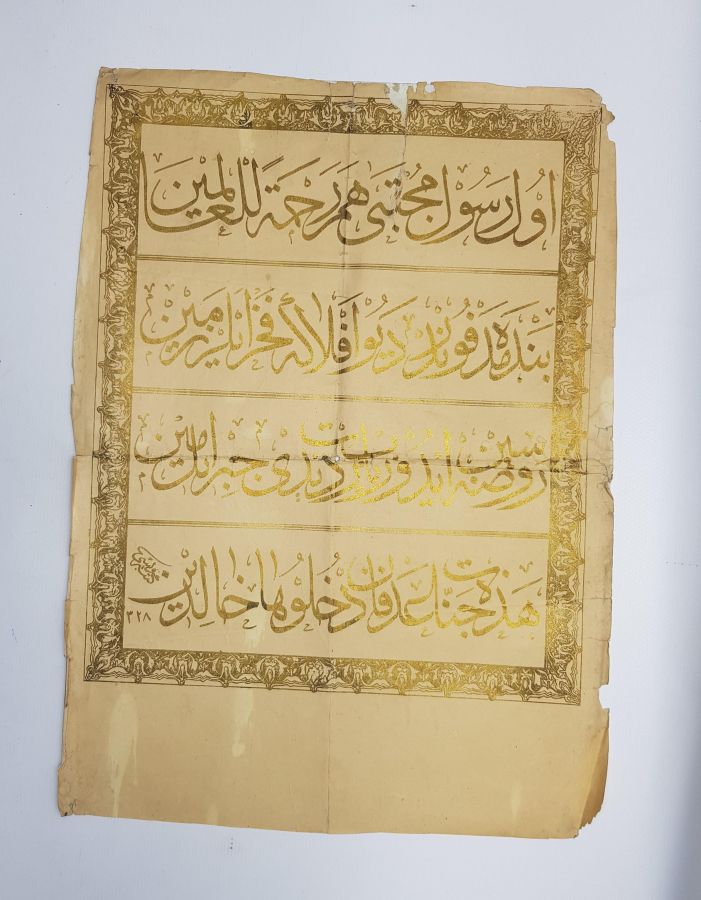 اول رسول مجتبى هم رحمة للعالمين
بنده مدفوندر ديو افلاكه فخر ايلر زمين
روضه سين ايدوب زيارت ديدى جبرائيل امين
هذه جنات عدن فادخلوها خالدين
٣٢٨